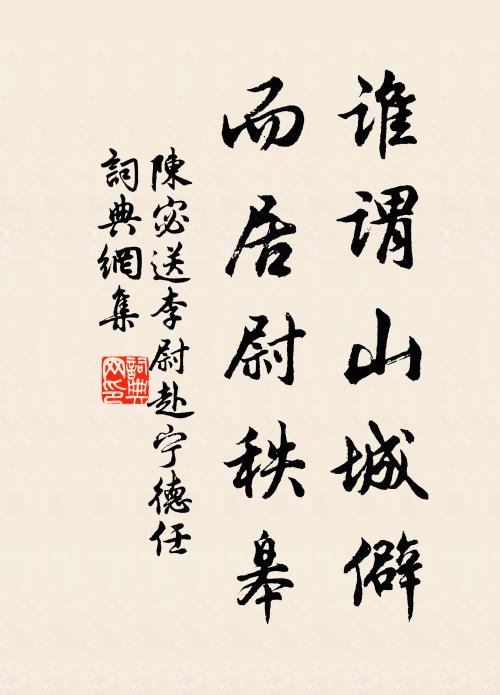 谁谓山城僻
而居尉秩皋
陳宓送李尉赴宁德任
詞典網集
詞典
网印